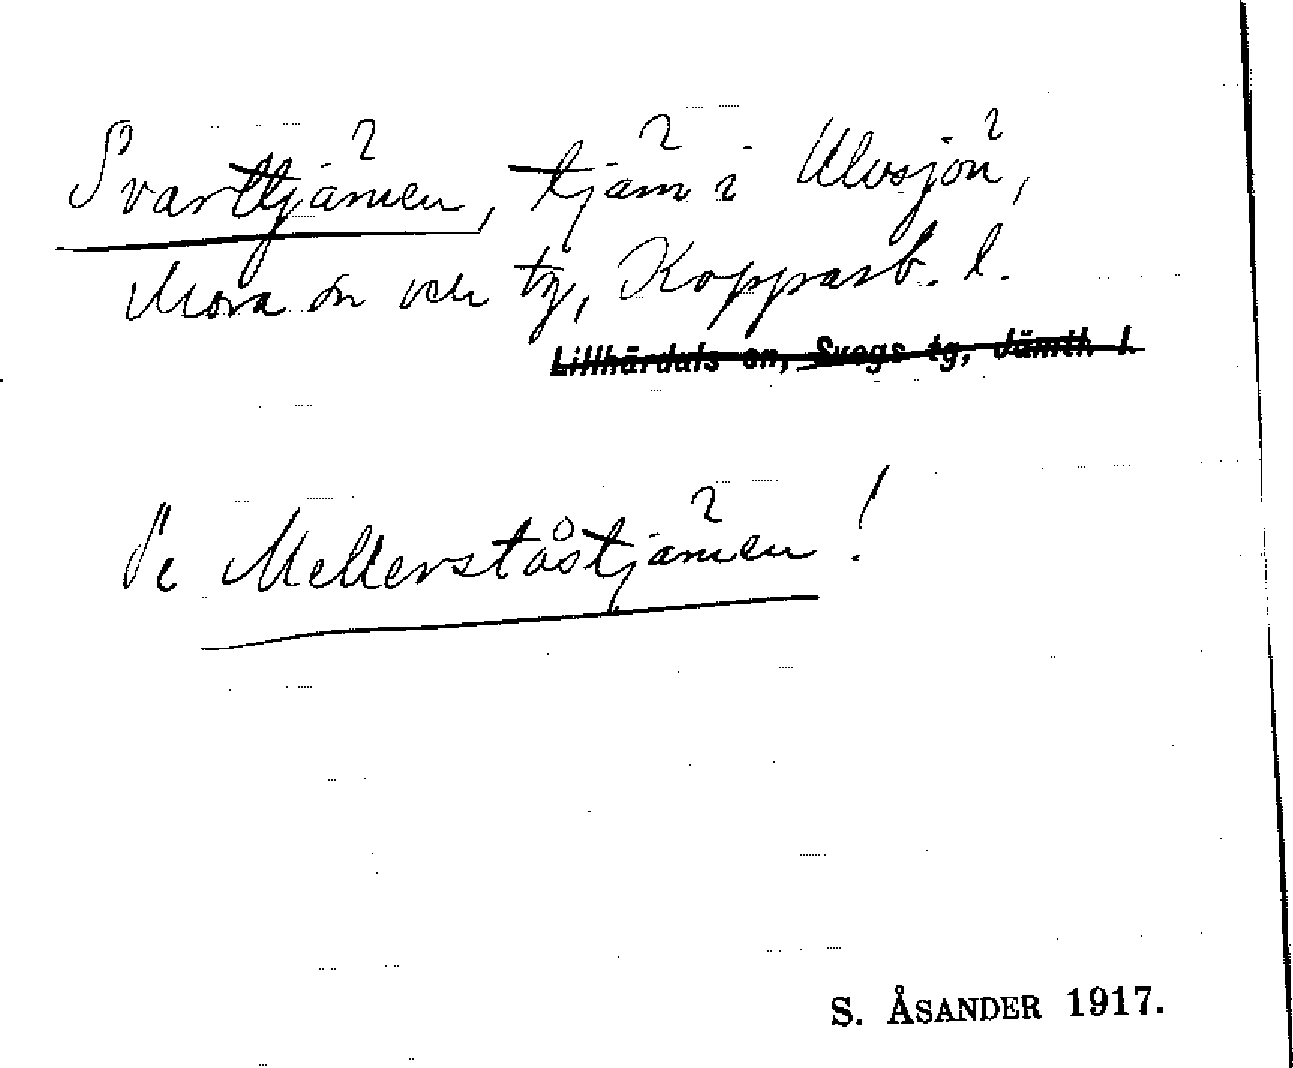 Svarttjärnen, tjärn i Ulvsjön,
Mora sn och tg, Kopparb. l.
Lillhärdals sn, Svegs tg, Jämtl. l.
Se Mellerståstjärnen!
S. ÅSANDER 1917.